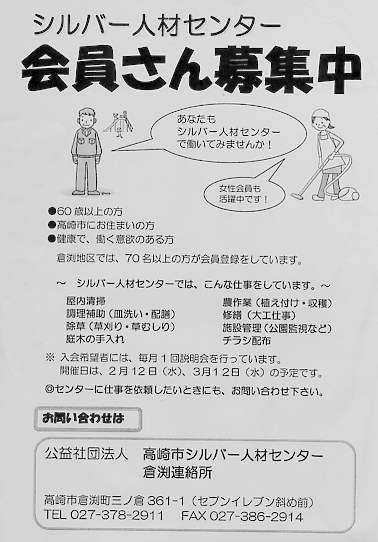 シルバー人材センター
会員さん募集中
あなたも
シルバー人材センター
で働いてみませんか！
女性会員も
活躍中です！
●60歳以上の方
●高崎市にお住まいの方
●健康で、働く意欲のある方
倉渕地区では、70名以上の方が会員登録をしています。
～ シルバー人材センターでは、こんな仕事をしています。～
屋内清掃 農作業（植え付け・収穫）
調理補助（皿洗い・配膳） 修繕（大工仕事）
除草（草刈り・草むしり） 施設管理（公園監視など）
庭木の手入れ チラシ配布
※ 入会希望者には、毎月1回説明会を行っています。
開催日は、2月12日（水）、3月12日（水）の予定です。
◎センターに仕事を依頼したいときにも、お問い合わせ下さい。
お問い合わせは
公益社団法人 高崎市シルバー人材センター
倉渕連絡所
高崎市倉渕町三ノ倉361-1（セブンイレブン斜め前）
TEL 027-378-2911 FAX 027-386-2914